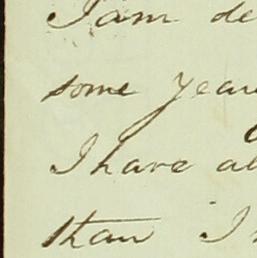 I am de
some year
I have al
than I